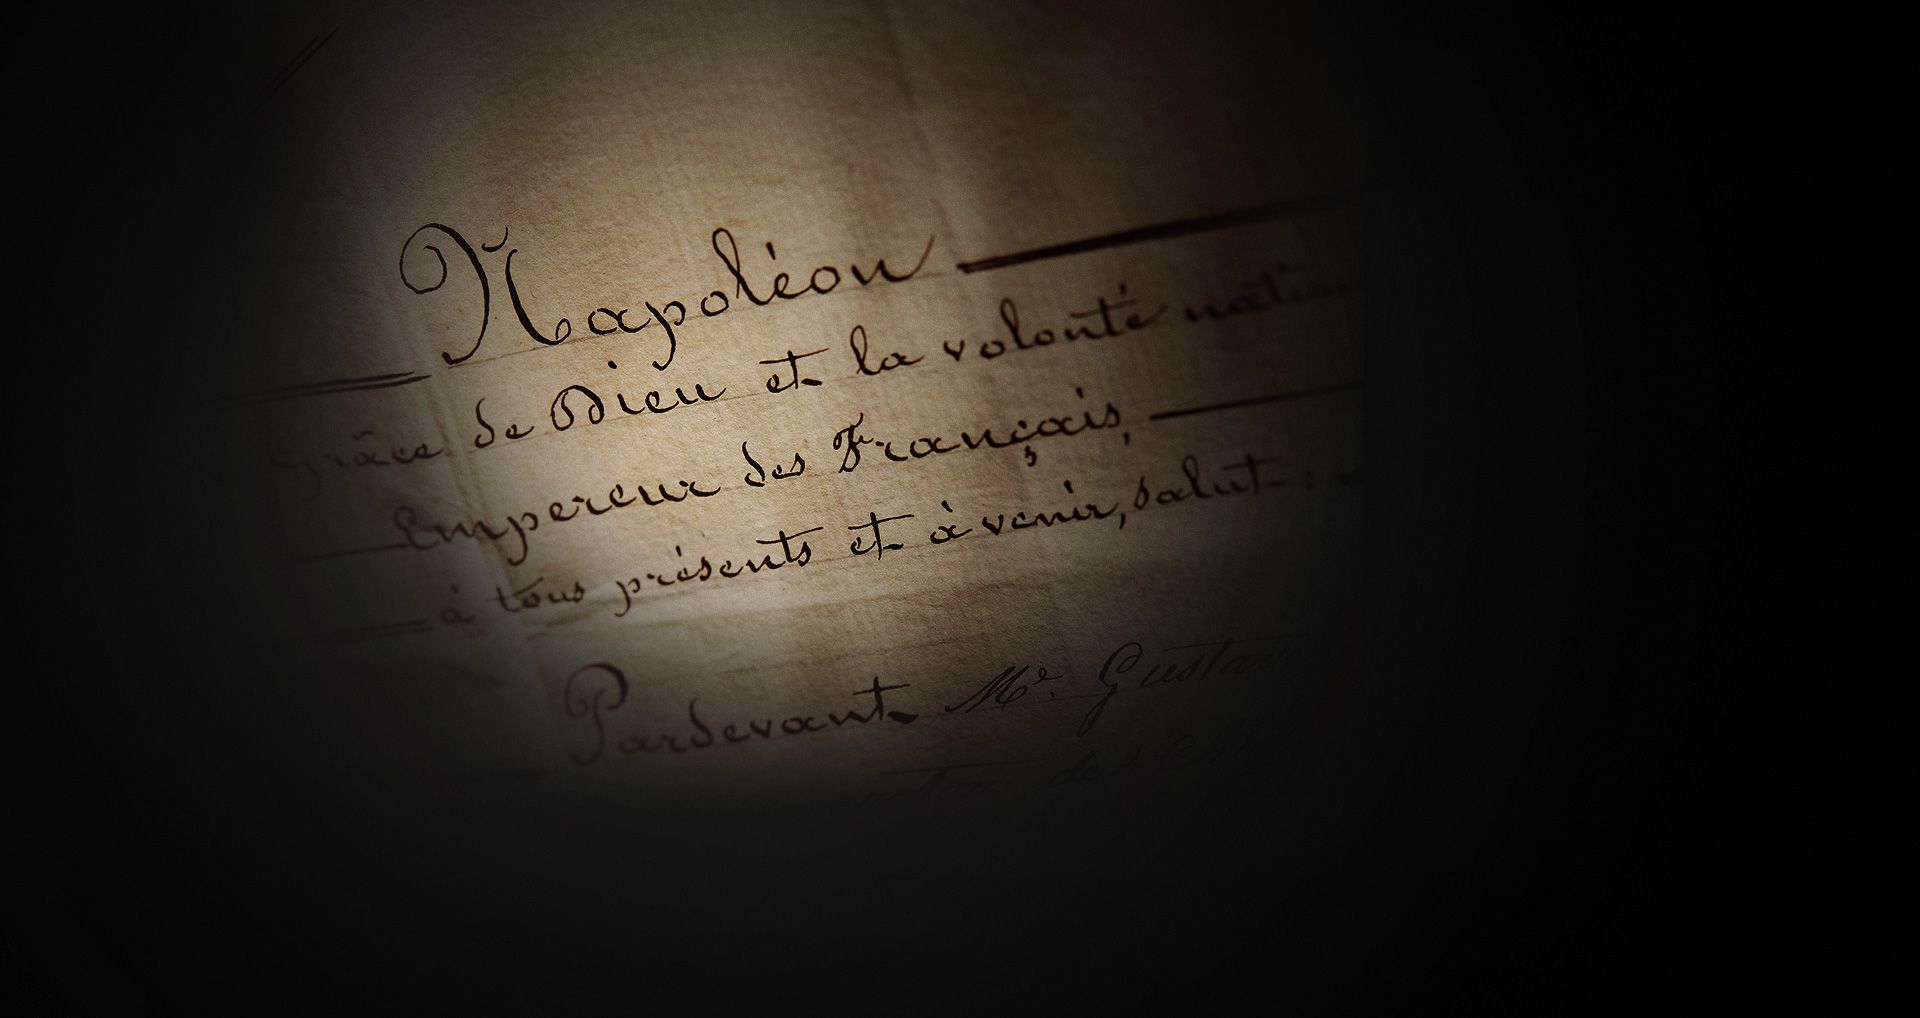 Napoléon
Grâce de Dieu et la volonté
Empereur des Français,
à tous présents et à venir, salut :
Pardevant Me.